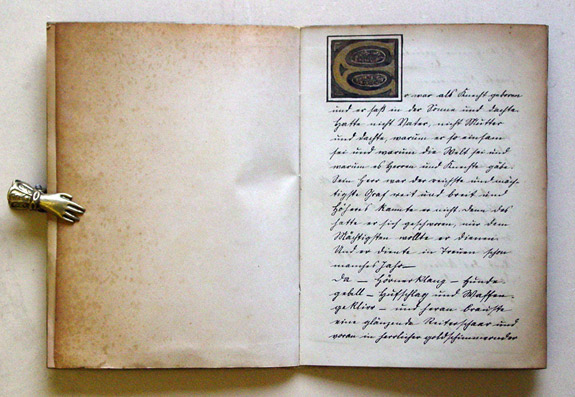 Er war als Knecht geboren
und er saß in der Sonne und dachte.
Hatte nicht Vater, nicht Mutter
und dachte, warum er so einsam
sei und warum die Welt sei und
warum es Herren und Knechte gäbe.
Sein Herr war der reichste und mäch-
tigste Graf weit und breit und
Höheres kannte er nicht. Denn das
hatte er sich geschworen, nur dem
Mächtigsten wollte er dienen.
Und er diente in Treuen schon
manches Jahr —
Da — Hörnerklang — Hunde-
gebell — Hufschlag und Waffen-
geklirr — und heran brauste
eine glänzende Reiterschaar und
voran in herrlicher goldschimmernder